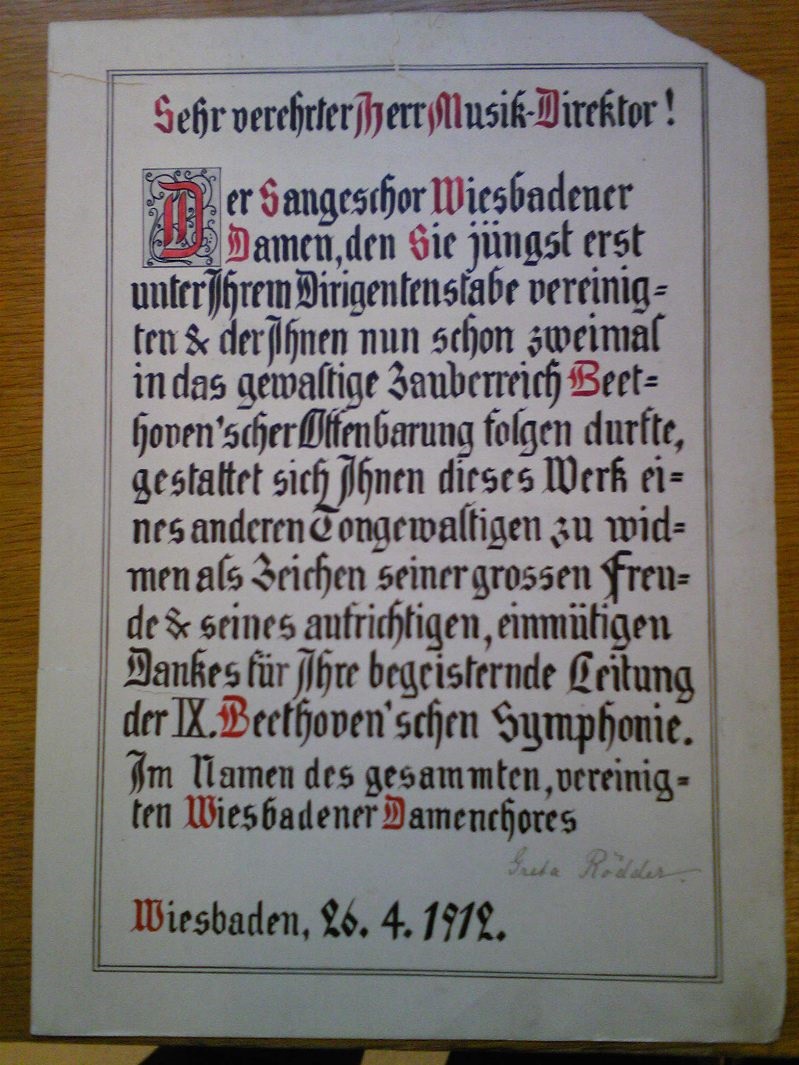 Sehr verehrter Herr Musik-Direktor!
Der Sangeschor Wiesbadener
Damen, den Sie jüngst erst
unter Ihrem Dirigentenstabe vereinig=
ten & der Ihnen nun schon zweimal
in das gewaltige Zauberreich Beet=
hoven'scher Offenbarung folgen durfte,
gestattet sich Ihnen dieses Werk ei=
nes anderen Tongewaltigen zu wid=
men als Zeichen seiner grossen Freu=
de & seines aufrichtigen, einmütigen
Dankes für Ihre begeisternde Leitung
der IX. Beethoven'schen Symphonie.
Im Namen des gesammten, vereinig=
ten Wiesbadener Damenchores
Greta Rödder.
Wiesbaden, 26. 4. 1912.